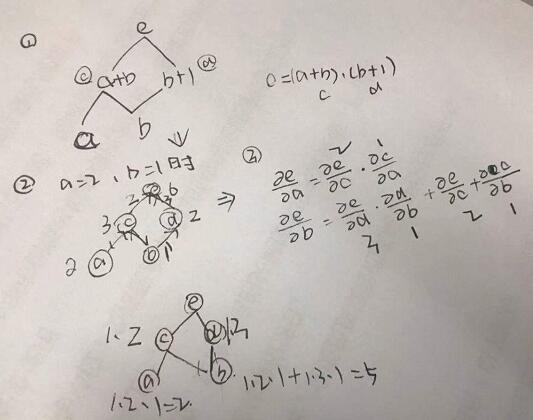 ①
e
ⓒ a+b b+1 ⓓ
e=(a+b)·(b+1)
c d
a b
② a=2, b=1时
e 6
3 3
3 c d 2
2 a b 1
⇒
③
2 1
∂e/∂a = ∂e/∂c · ∂c/∂a
∂e/∂b = ∂e/∂d · ∂d/∂b + ∂e/∂c + ∂c/∂b
3 1 2 1
e
1·2 c d 1·3
a b 1·2·1+1·3·1=5
1·2·1=2.